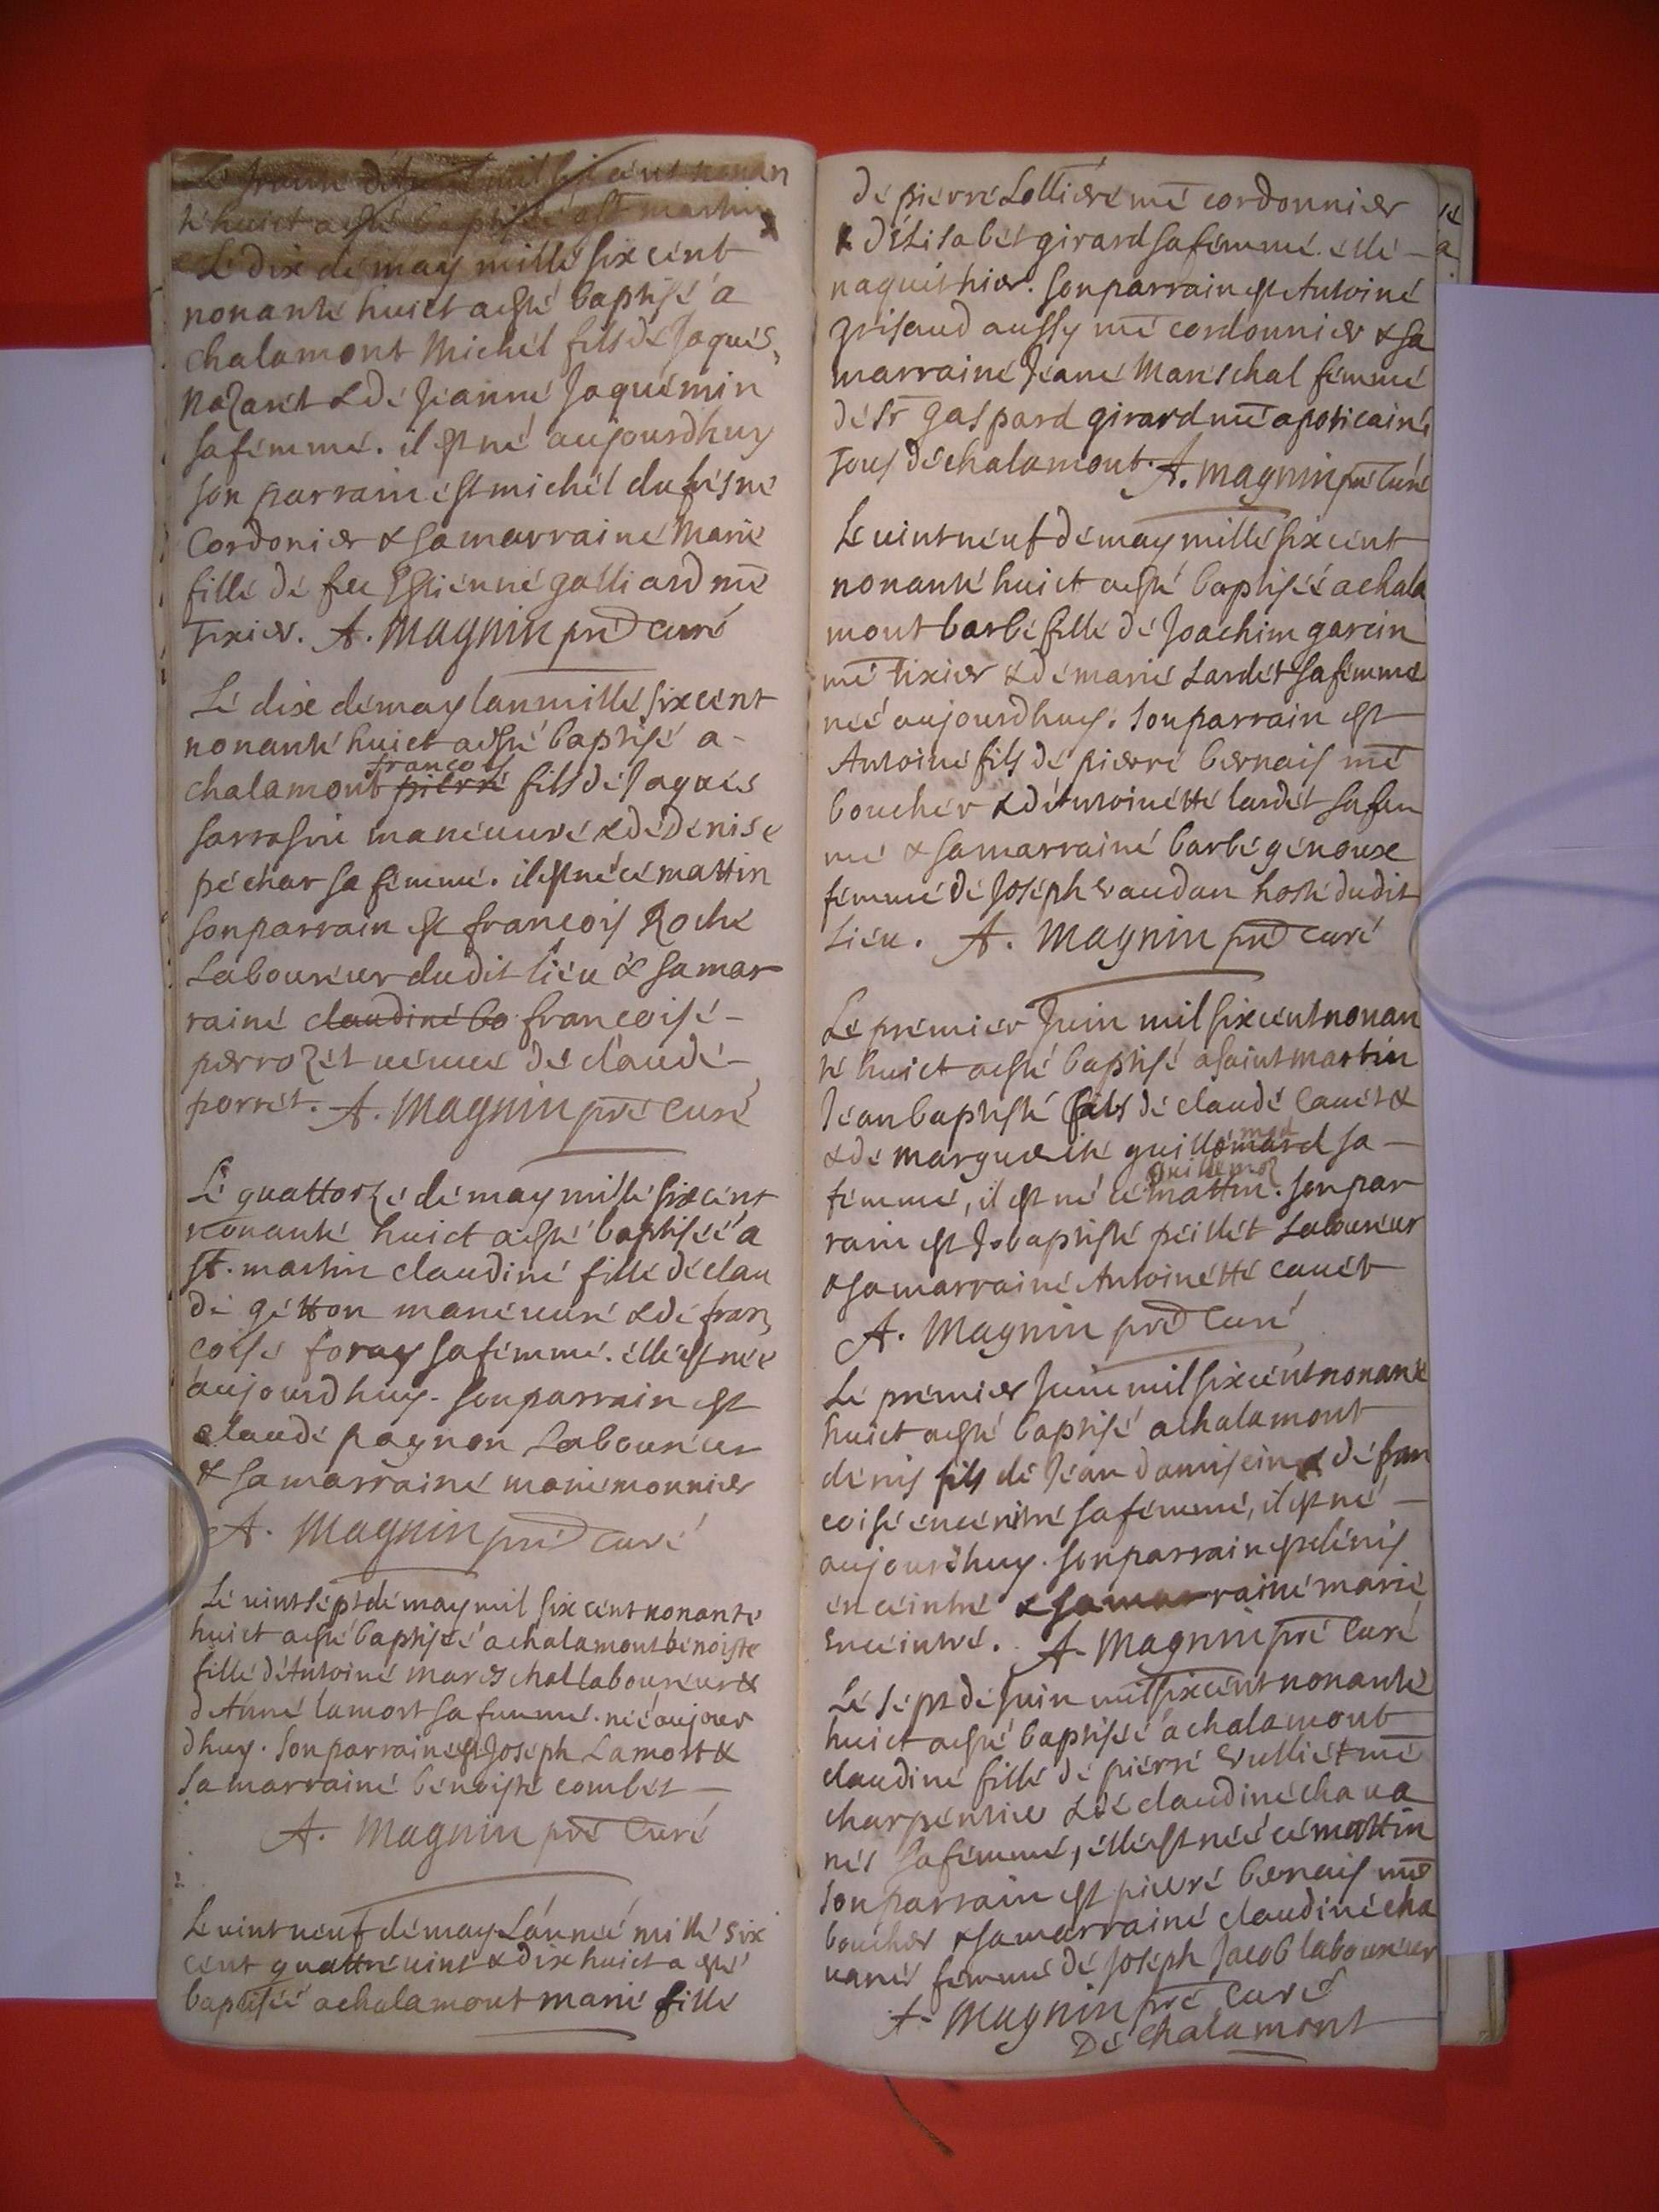 Le trante d'Avril mil six cent nonan
te huict a esté baptisé a st martin
Le dix de may mille six cent
nonante huict a esté baptisé a
chalamont Michel fils de Jaques
Nazaret & de Jeanne Jaquemin
sa femme. il est né aujourdhuy
son parrain est michel dufresne
Cordonier & sa marraine Marie
fille de feu Estienne galliard me
Tixier. A. Magnin pre Curé
Le dix de may lan mille six cent
nonante huict a esté baptisé a -
francois
chalamont pierre fils de Jaques
sarrasin maneuure & de denise
pechar sa femme. il est né ce mattin
son parrain est francois Roche
Laboureur dudit lieu & sa mar
raine claudine bo francoise -
perrozet veuue de claude -
porret. A. Magnin pre Curé
Le quattorze de may mille six cent
nonante huict a esté baptisée a
st. martin claudine fille de clau
de getton maneuure & de fran
coise foray sa femme. elle est née
aujourdhuy. son parrain est
claude pagnon Laboureur
& sa marraine marie monnier
A. Magnin pre Curé
Le uint sept de may mil six cent nonante
huict a esté baptisée a chalamont benoiste
fille d'Antoine mareschal laboureur &
d'Anne lamort sa femme. née aujour
dhuy. son parrain est Joseph Lamort &
sa marraine benoiste combet -
A. Magnin pre Curé
Le uint neuf de may L'année mille six
cent quattre uint & dix huict a esté
baptisée a chalamont marie fille
de pierre Lollière me cordonnier
& d'Elisabet girard sa femme. elle -
naquit hier. son parrain est Antoine
grisaud aussy me cordonnier & sa
marraine Jeane Mareschal femme
de sr gaspard girard me apoticaire
Tous de chalamont. A. Magnin pre Curé
Le uint neuf de may mille six cent
nonante huict a esté baptisée a chala
mont barbe fille de Joachim garcin
me tixier & de marie Lardet sa femme
née aujourdhuy. son parrain est
Antoine fils de pierre bernais me
boucher & d'Antoinette lardet sa fem
me & sa marraine barbe genoux
femme de Joseph vaudan hoste dudit
Lieu. A. Magnin pre Curé
Le premier Juin mil six cent nonan
te huict a esté baptisé a saint martin
Jean baptiste fils de claude Cauet &
& de marguerite guillemard sa -
guillemoz
femme, il est né ce mattin. son par
rain est J. baptiste peillet Laboureur
& sa marraine Antoinette cauet
A. Magnin pre Curé
Le premier Juin mil six cent nonante
huict a esté baptisé a chalamont
denis fils de Jean damiscin & de fran
coise enceintre sa femme, il est né -
aujourdhuy. son parrain est denis
enceintre & sa marraine marie
enceintre. A. Magnin pre Curé
Le sept de Juin mil six cent nonante
huict a esté baptisée a chalamont
claudine fille de pierre vulliet me
charpentier & de claudine chaua
nes sa femme, elle est née ce mattin
son parrain est pierre bernais me
boucher & sa marraine claudine cha
uanes femme de Joseph Jacob laboureur
A. Magnin pre Curé
De chalamont